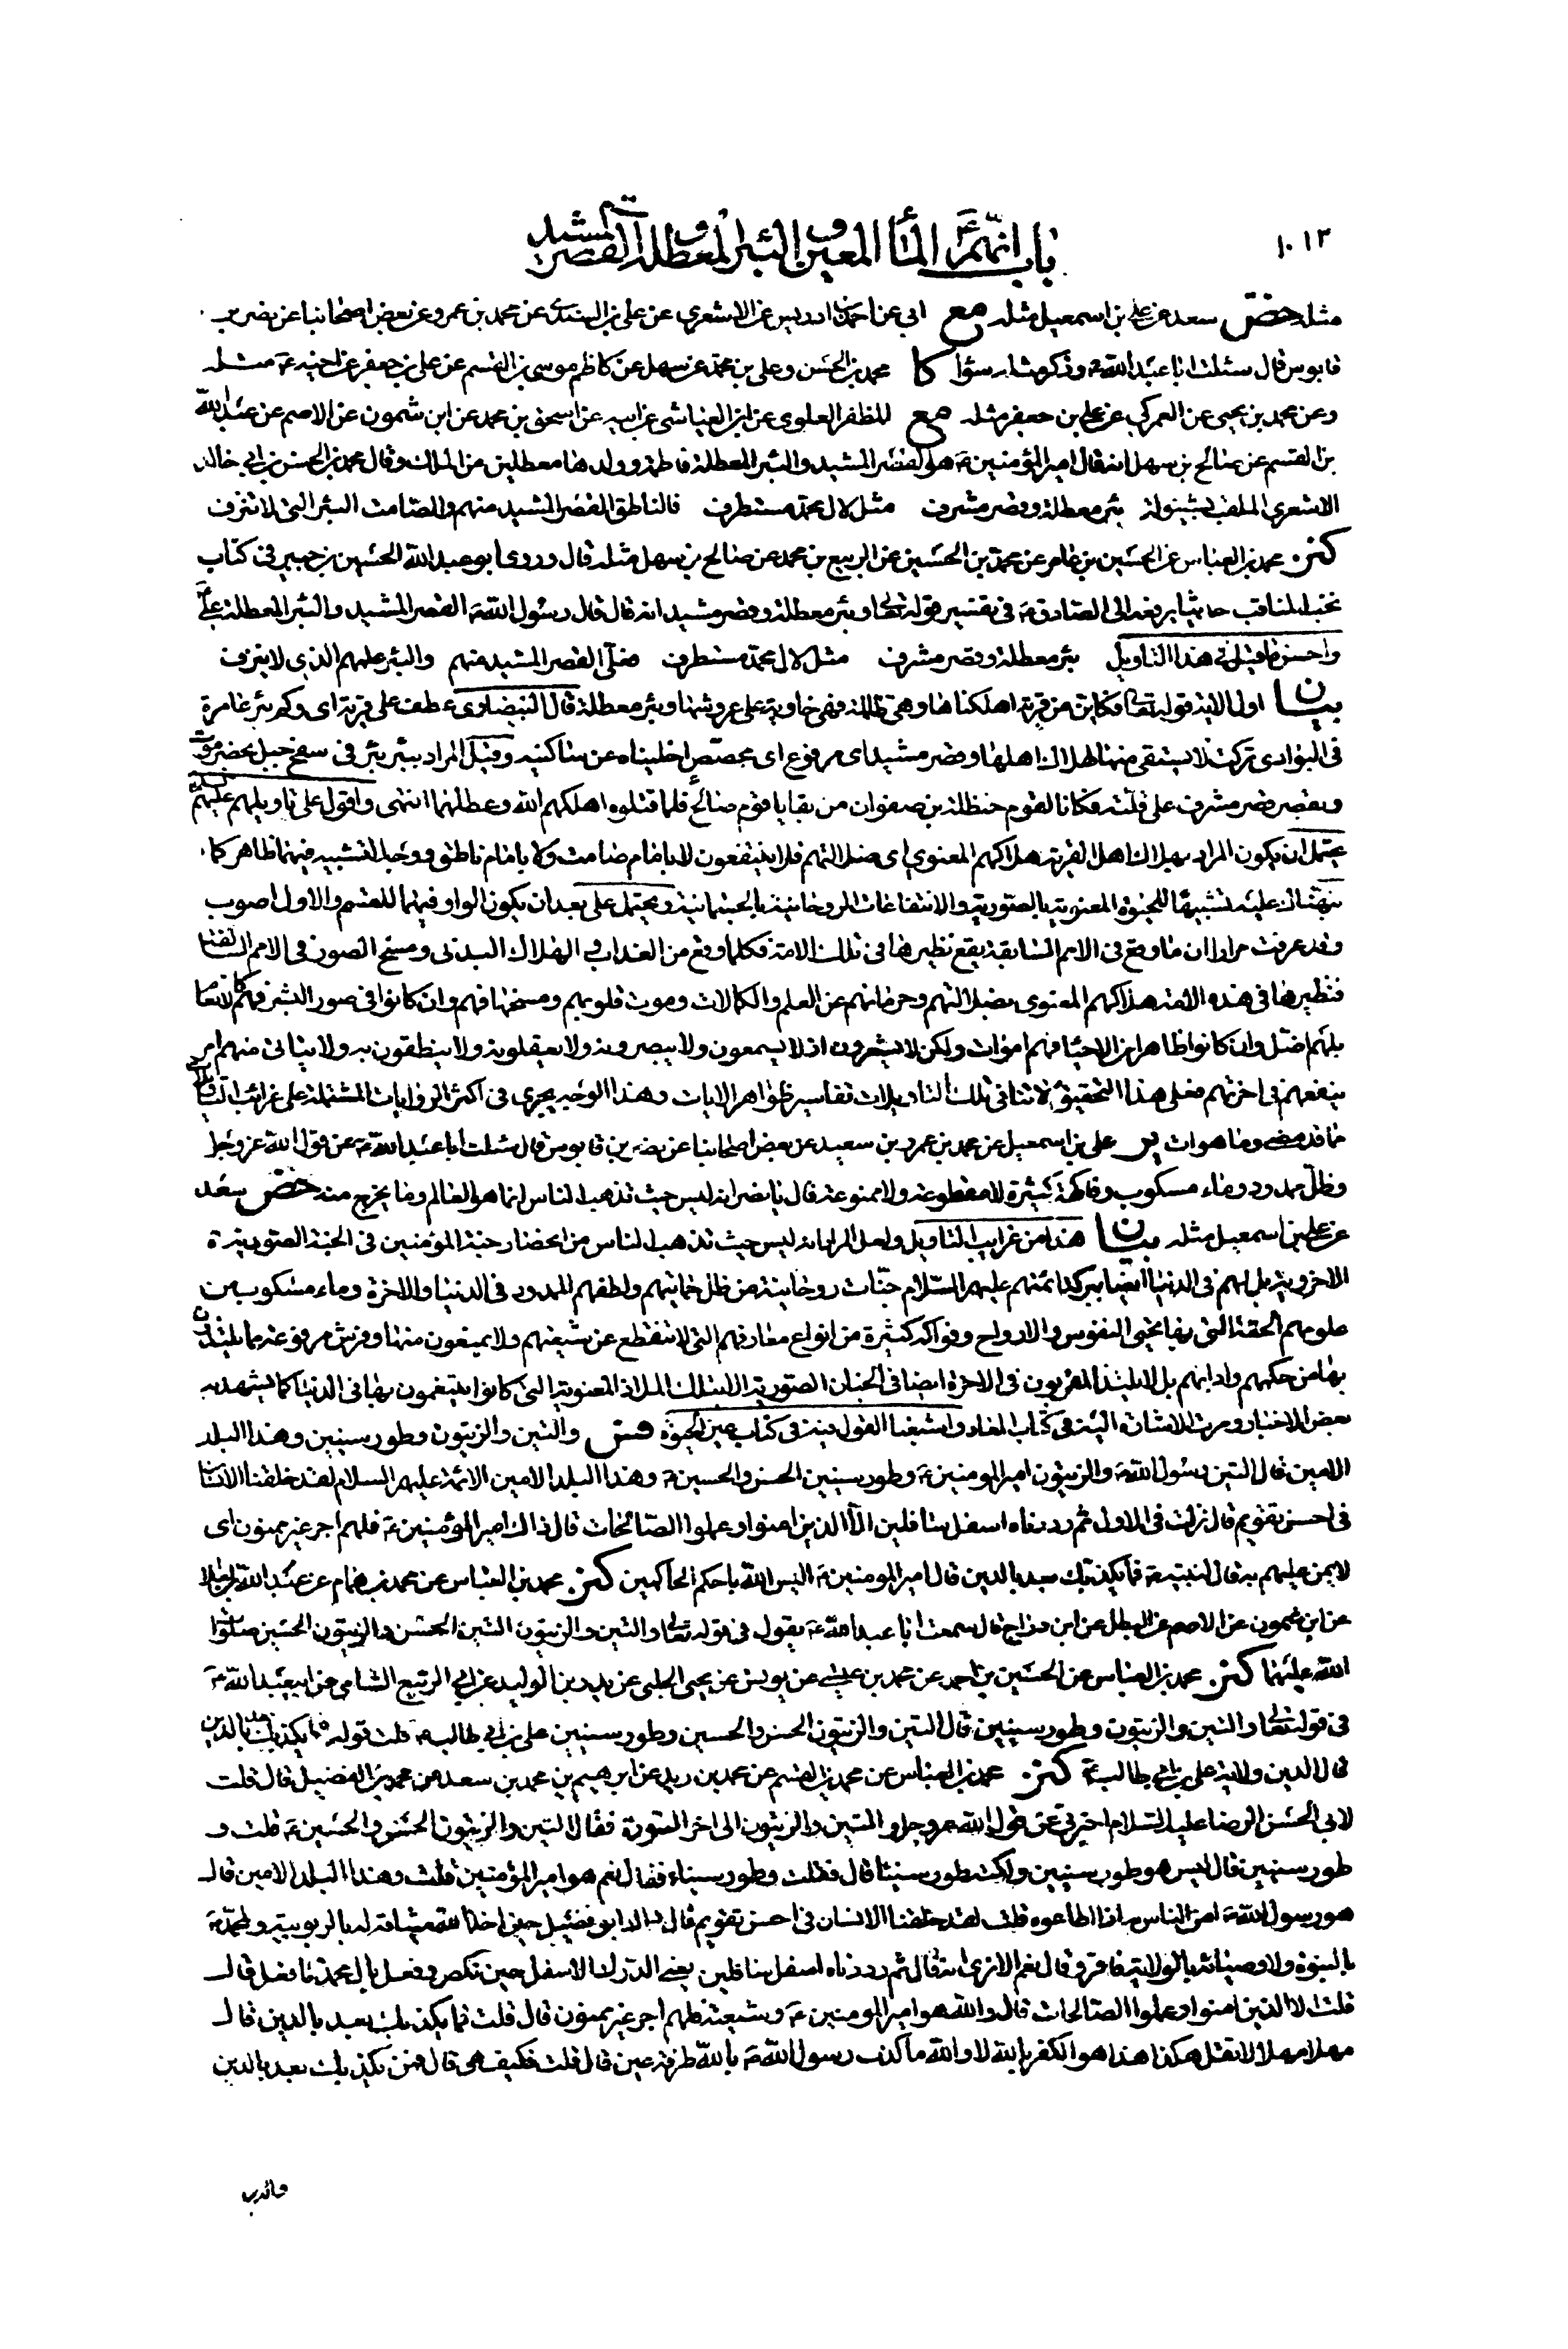 ١٠١٣
باب انهم ع الماء المعين و البئر المعطلة و القصر المشيد
مثله خص سعد عن علي بن اسمعيل مثله مع ابي عن احمد بن ادريس عن الاشعري عن علي بن السندي عن محمد بن عمرو عن بعض اصحابنا عن نصر بن
قابوس قال سئلت ابا عبد الله ع وذكر مثله سؤا كا محمد بن الحسن وعلي بن محمد عن سهل عن موسى بن القسم عن علي بن جعفر عن اخيه ع مثله
وعن محمد بن يحيى عن العمركي عن علي بن جعفر مثله مع المظفر العلوي عن ابن العياشي عن ابيه عن اسحق بن محمد عن ابن شمون عن الاصم عن عبد الله
بن القسم عن صالح بن سهل انه قال امير المؤمنين ع هو القصر المشيد والبئر المعطلة فاطمة وولدها معطلين من الملك وقال محمد بن الحسن بن ابي خالد
الاشعري الملقب بشينولة بئر معطلة وقصر مشرف مثل لال محمد مستطرف فالناطق القصر المشيد منهم والصامت البئر التي لا تنزف
كنز محمد بن العباس عن الحسين بن عامر عن محمد بن الحسين عن الربيع بن محمد عن صالح بن سهل مثله قال وروى ابو عبد الله الحسين بن جبير في كتاب
نخب المناقب حديثا يرفعه الى الصادق ع في تفسير قوله تعالى وبئر معطلة وقصر مشيد انه قال قال رسول الله ص القصر المشيد والبئر المعطلة علي ع
واحسن ما قيل في هذا التاويل بئر معطلة وقصر مشرف مثل لال محمد مستطرف فعلي القصر المشيد منهم والبئر علمهم الذي لا ينزف
بيان اول الاية قوله تعالى فكاين من قرية اهلكناها وهي ظالمة فهي خاوية على عروشها وبئر معطلة قال البيضاوي عطف على قرية اي وكم بئر عامرة
في البوادي تركت لا يستقى منها لهلاك اهلها وقصر مشيد اي مرفوع اي مجصص اخليناه عن ساكنيه وقيل المراد ببئر بئر في سفح جبل بحضرموت
وبقصر قصر مشرف على قلته فكانا لقوم حنظلة بن صفوان من بقايا قوم صالح فلما قتلوه اهلكهم الله وعطلهما انتهى واقول على تاويلهم عليهم السلام
يحتمل ان يكون المراد بهلاك اهل القرية هلاكهم المعنوي اي ضلالتهم فلا ينتفعون لا بامام صامت ولا بامام ناطق ووجه التشبيه فيهما ظاهر كما
نبهناك عليه تشبيها للحيوة المعنوية بالصورية والانتفاعات الروحانية بالجسمانية ويحتمل على بعد ان يكون الواو فيهما للقسم والاول اصوب
وقد عرفت مرارا ان ما وقع في الامم السابقة يقع نظيرها في تلك الامة فكلما وقع من العذاب والهلاك البدني ومسخ الصور في الامم السالفة
فنظيرها في هذه الامة هلاكهم المعنوي بضلالتهم وحرمانهم عن العلم والكمالات وموت قلوبهم ومسخها فهم وان كانوا في صور البشر فهم كالانعام
بل هم اضل وان كانوا ظاهرا من الاحياء فهم اموات ولكن لا يشعرون اذ لا يسمعون ولا يبصرون ولا يعقلون ولا ينطقون به ولا يتاتى منهم امر
ينفعهم في اخرتهم فعلى هذا التحقيق لا تنافي تلك التاويلات تفاسير ظواهر الايات وهذا الوجه يجري في اكثر الروايات المشتملة على غرائب التاويل
ما قد مضى وما هو ات ير علي بن اسمعيل عن محمد بن عمرو بن سعيد عن بعض اصحابنا عن نصر بن قابوس قال سئلت ابا عبد الله ع عن قول الله عز وجل
وظل ممدود وماء مسكوب وفاكهة كثيرة لا مقطوعة ولا ممنوعة قال يا نصر انه ليس حيث تذهب الناس انما هو العالم وما يخرج منه خص سعد
عن علي بن اسمعيل مثله بيان هذا من غرايب التاويل ولعل المراد انه ليس حيث تذهب الناس من انحصار جنة المؤمنين في الجنة الصورية
الاخروية بل لهم في الدنيا ايضا ببركة ائمتهم عليهم السلام جنات روحانية من ظل حمايتهم ولطفهم الممدود في الدنيا والاخرة وماء مسكوب من
علومهم الحقة التي بها يحيى النفوس والارواح وفواكه كثيرة من انواع معارفهم التي لا تنقطع عن شيعتهم ولا يمنعون منها وفرش مرفوعة مما يلتذون
بها من حكمهم وادابهم بل لا يلتذ المقربون في الاخرة ايضا في الجنان الصورية الا بتلك الملاذ المعنوية التي كانوا يتنعمون بها في الدنيا كما يشهد به
بعض الاخبار ومرت الاشارة اليه في كتاب المعاد واشبعنا القول فيه في كتاب عين الحيوة فس والتين والزيتون وطور سينين وهذا البلد
الامين قال التين رسول الله ص والزيتون امير المومنين ع وطور سينين الحسن والحسين ع وهذا البلد الامين الائمة عليهم السلام لقد خلقنا الانسان
في احسن تقويم قال نزلت في الاول ثم رددناه اسفل سافلين الا الذين امنوا وعملوا الصالحات قال ذاك امير المؤمنين ع فلهم اجر غير ممنون اي
لا يمن عليهم به قال لنبيه ص فما يكذبك بعد بالدين قال امير المومنين ع اليس الله باحكم الحاكمين كنز محمد بن العباس عن محمد بن همام عن عبد الله بن العلا
عن ابن شمون عن الاصم عن البطل عن ابن دراج قال سمعت ابا عبد الله ع يقول في قوله تعالى والتين والزيتون التين الحسن والزيتون الحسين صلوات
الله عليهما كنز محمد بن العباس عن الحسين بن احمد عن محمد بن عيسى عن يونس عن يحيى الحلبي عن بدر بن الوليد عن ابي الربيع الشامي عن ابي عبد الله ع
في قوله تعالى والتين والزيتون وطور سينين قال التين والزيتون الحسن والحسين وطور سينين علي بن ابي طالب ع قلت قوله فما يكذبك بعد بالدين
قال الدين ولاية علي بن ابي طالب ع كنز محمد بن العباس عن محمد بن القسم عن محمد بن زيد عن ابرهيم بن محمد بن سعد عن محمد بن الفضيل قال قلت
لابي الحسن الرضا عليه السلام اخبرني عن قول الله عز وجل والتين والزيتون الى اخر السورة فقال التين والزيتون الحسن والحسين ع قلت و
طور سينين قال ليس هو طور سينين ولكنه طور سيناء قال فقلت وطور سيناء فقال نعم هو امير المؤمنين قلت وهذا البلد الامين قال
هو رسول الله ص امن الناس به اذا اطاعوه قلت لقد خلقنا الانسان في احسن تقويم قال ذاك ابو فضيل حين اخذ الله ميثاقه له بالربوبية ولمحمد ص
بالنبوة ولاوصيائه بالولاية فاقر وقال نعم الا ترى انه قال ثم رددناه اسفل سافلين يعني الدرك الاسفل حين نكص وفعل بال محمد ما فعل قال
قلت الا الذين امنوا وعملوا الصالحات قال والله هو امير المومنين ع وشيعته فلهم اجر غير ممنون قال قلت فما يكذبك بعد بالدين قال
مهلا مهلا لا تقل هكذا هذا هو الكفر بالله لا والله ما كذب رسول الله ص بالله طرفة عين قال قلت فكيف هي قال فمن يكذبك بعد بالدين
والدين